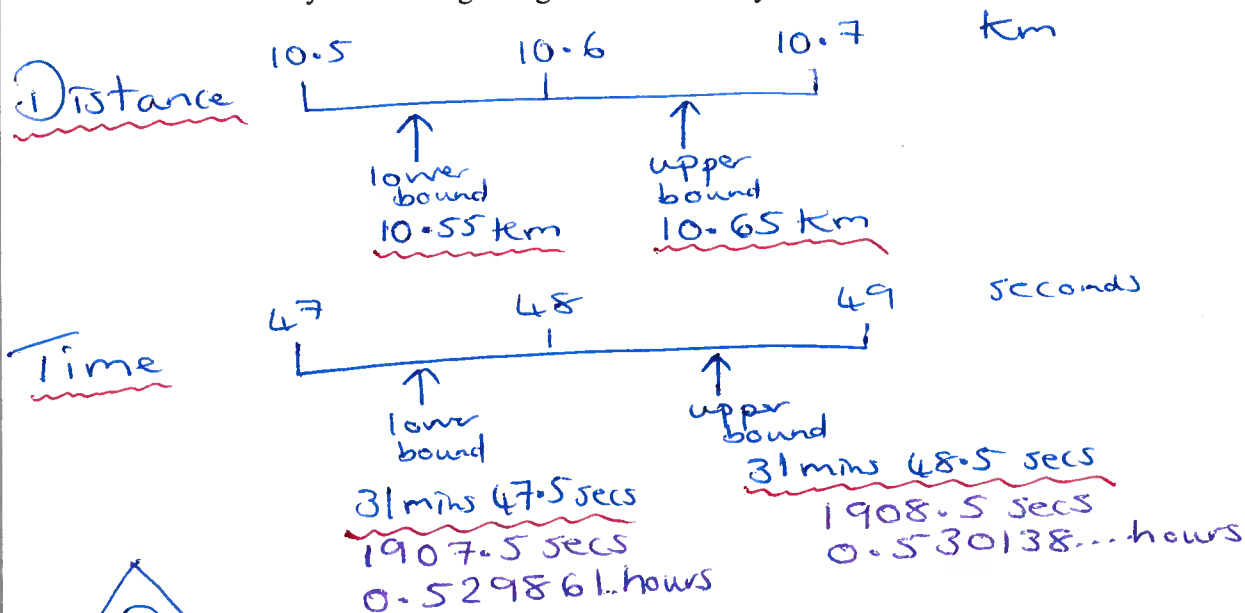 10.5 10.6 10.7 Km
Distance
lower bound
10.55 km
upper bound
10.65 km
47 48 49 seconds
Time
lower bound
31 mins 47.5 secs
1907.5 secs
0.529861.. hours
upper bound
31 mins 48.5 secs
1908.5 secs
0.530138.... hours